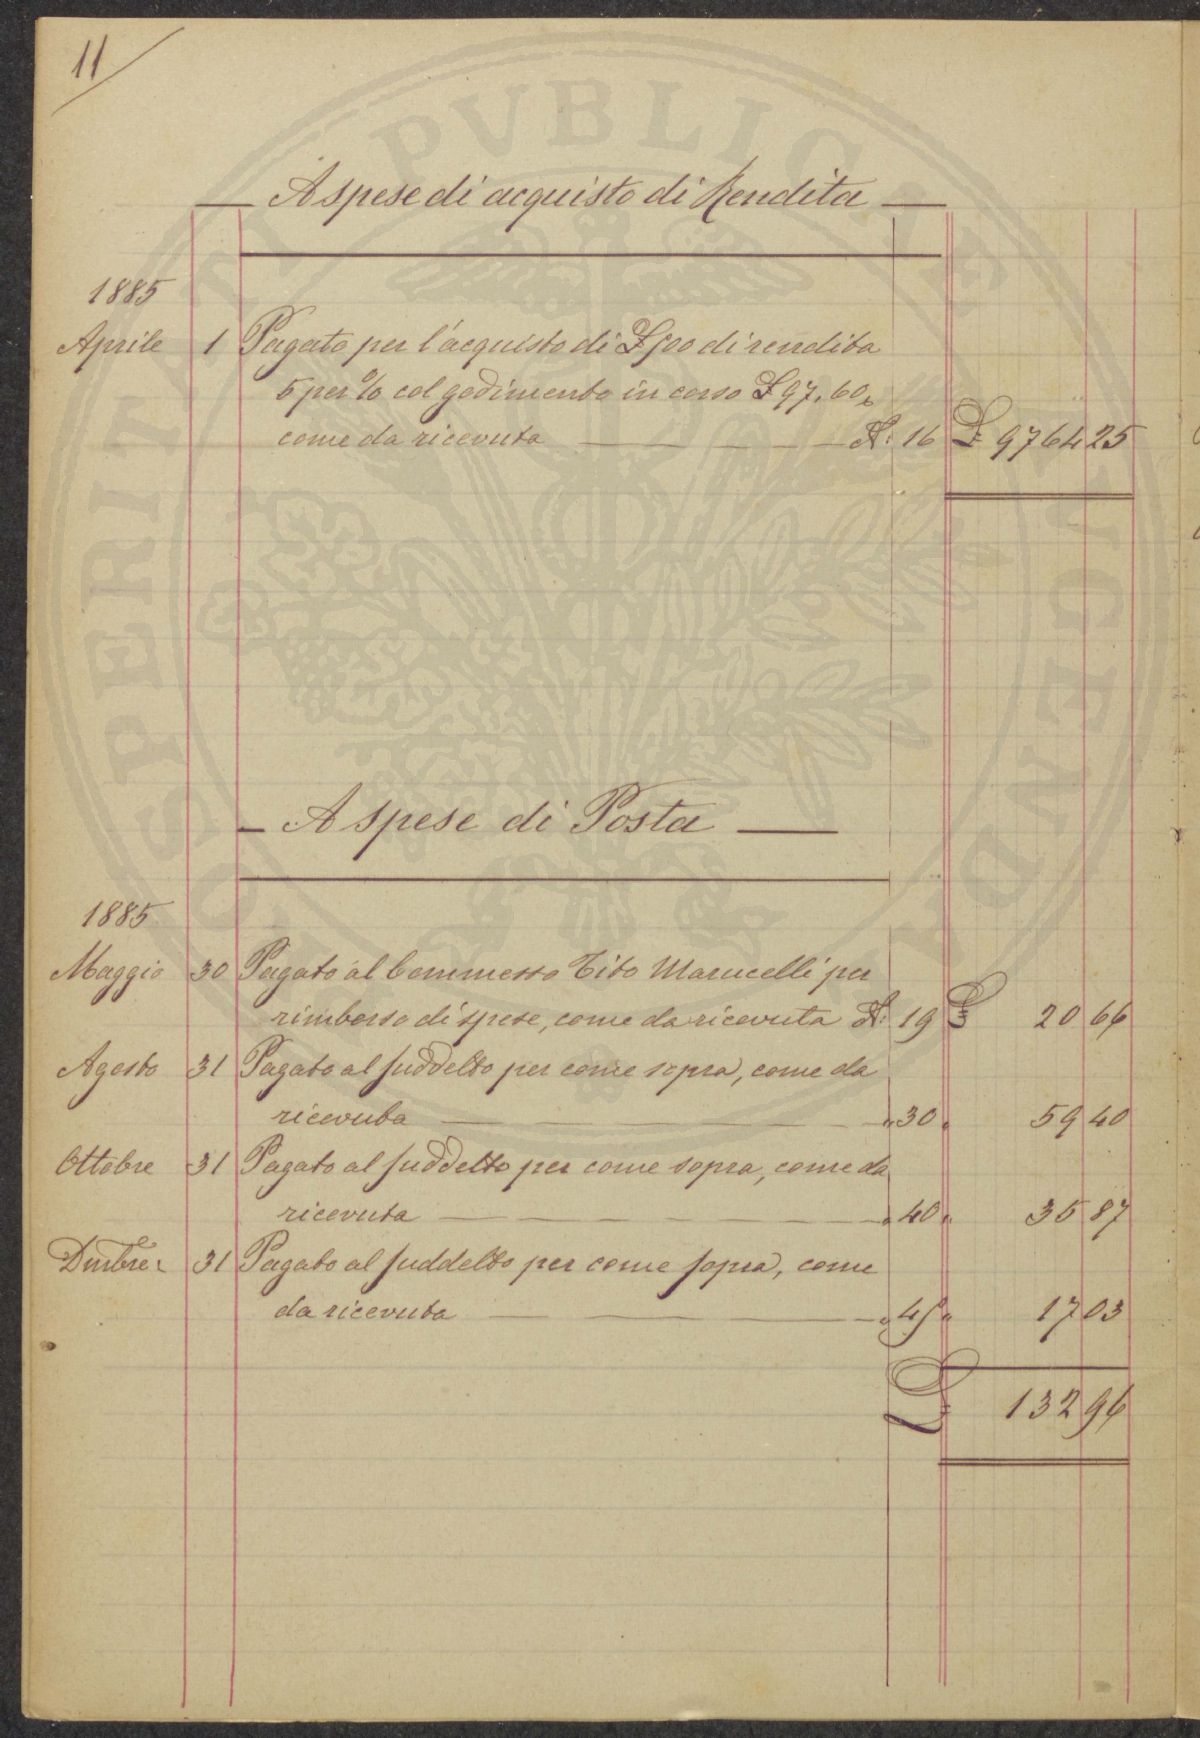 11
A spese di acquisto di Rendita
1885
Aprile 1 Pagato per l'acquisto di £ 500 di rendita
5 per % col godimento in corso £ 97.60,
come da ricevuta N: 16 £ 9764 25
A spese di Posta
1885
Maggio 30 Pagato al Commesso Tito Marucelli per
rimborso di spese, come da ricevuta N: 19 £ 20 66
Agosto 31 Pagato al suddetto per come sopra, come da
ricevuta " 30 " 59 40
Ottobre 31 Pagato al suddetto per come sopra, come da
ricevuta " 40 " 35 87
Dmbre: 31 Pagato al suddetto per come sopra, come
da ricevuta " 45 " 17 03
£ 132 96